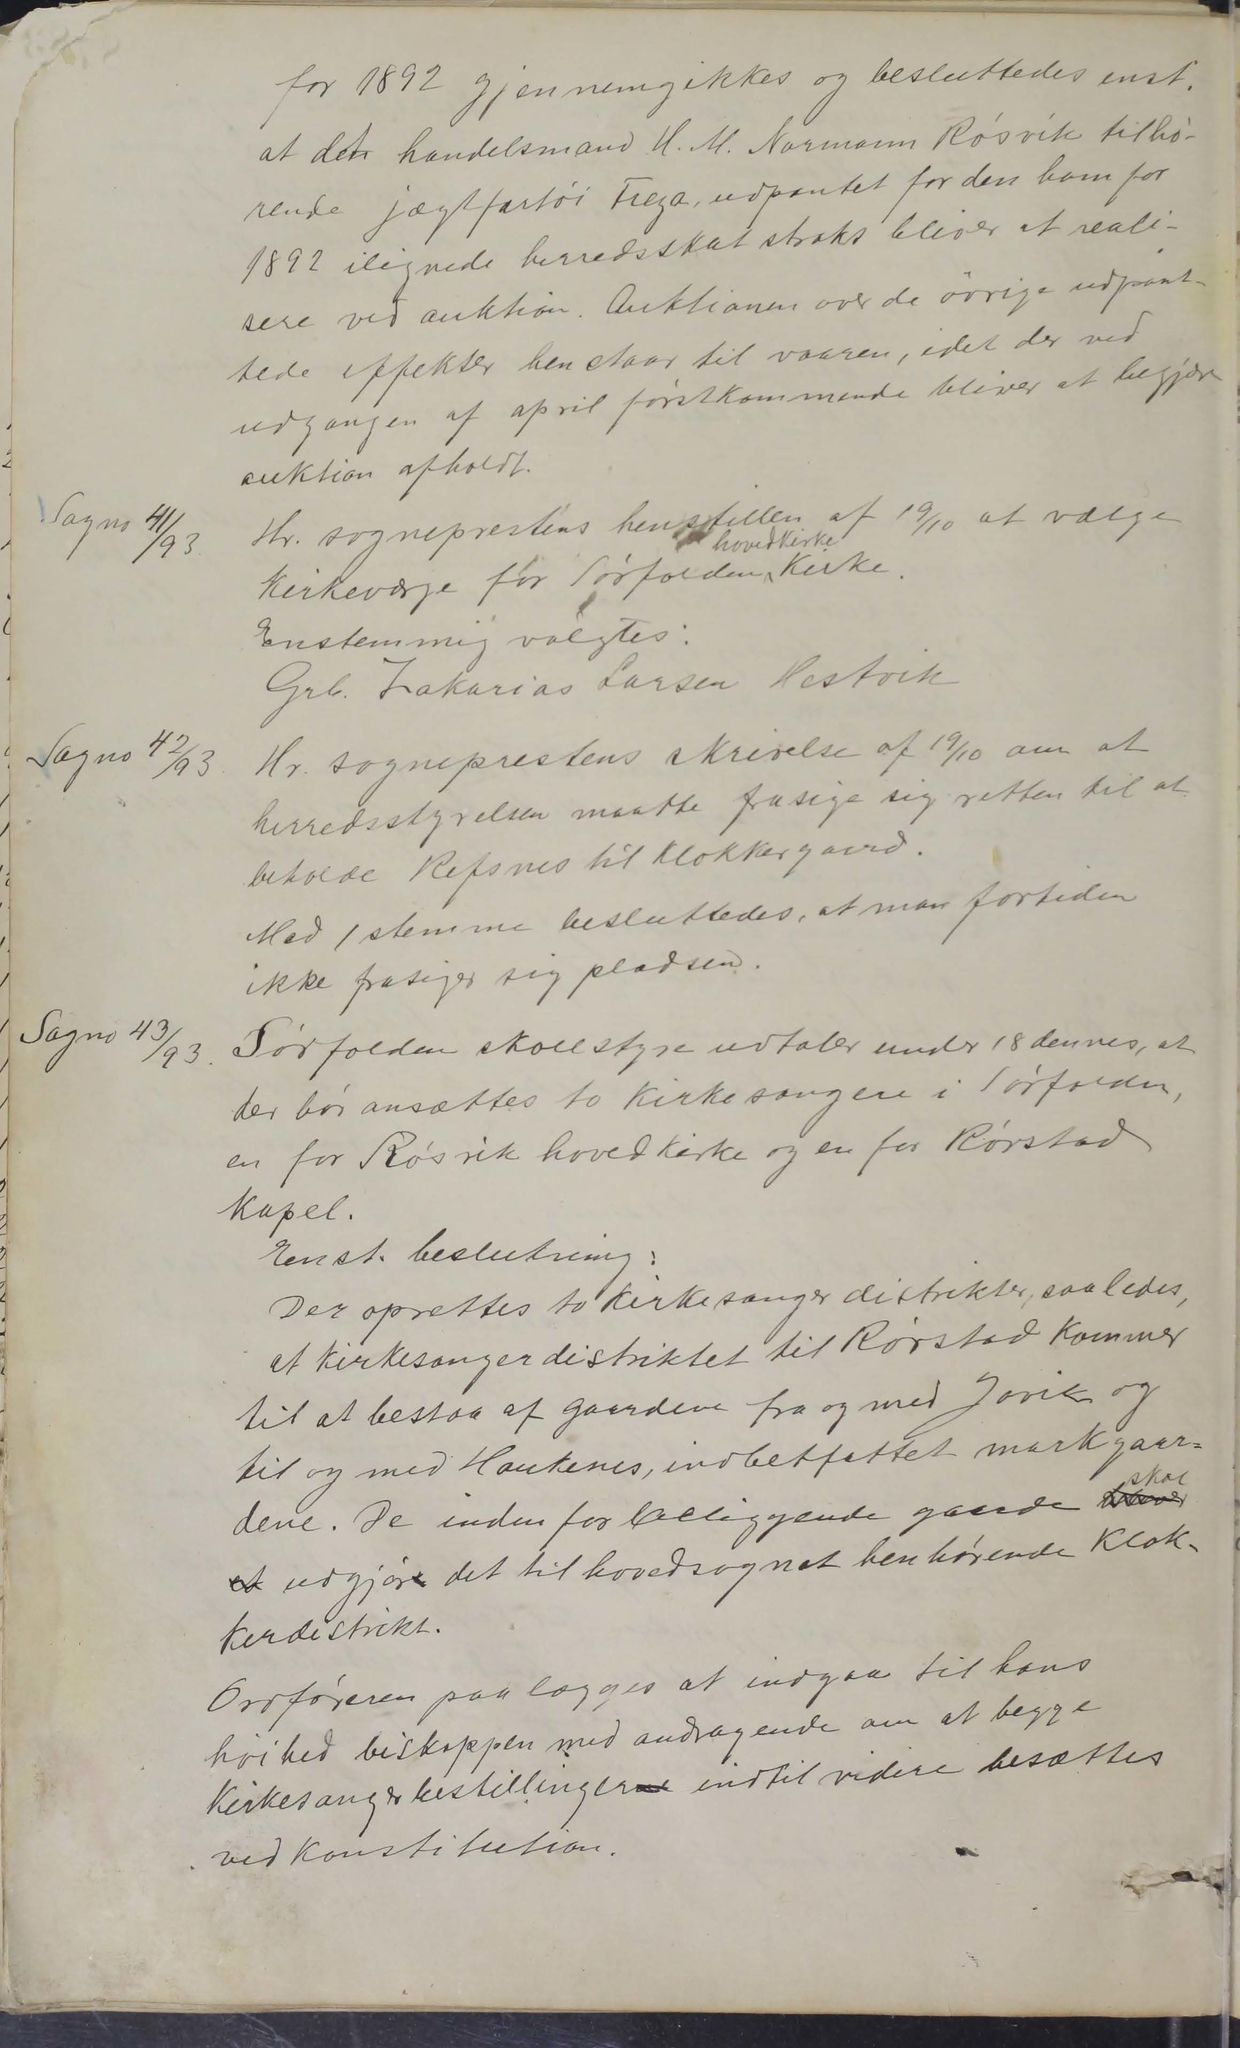 for 1892 gjennemgikkes og besluttedes enst.
at den handelsmand H. M. Normann Rósvik tilhó-
rende jægtfartói Freya, udpantet for den ham for
1892 ilignede herredsskat straks bliver at reali-
sere ved auktion. Auktionen over de óvrige udpant-
tede effekter henstaar til vaaren, idet der ved
udgangen af april fórstkommende bliver at begjære
auktion afholdt.
Sagno 41/93. Hr. sogneprestens henstillen af 19/10 at vælge
hovedkirke
Kirkeværge for Sórfolden Kirke.
Enstemmig valgtes:
Grb. Zakarias Larsen Hestvik
Sagno 42/93. Hr. sogneprestens skrivelse af 19/10 om at
herredsstyrelsen maatte frasige sig retten til at
beholde Refsnes til Klokkergaard.
Med 1 stemme besluttedes, at man fortiden
ikke frasiger sig pladsen.
Sagno 43/93. Sórfolden skolestyre udtaler under 18 dennes, at
der bór ansættes to Kirkesangere i Sórfolden,
en for Rósvik hovedkirke og en for Rórstad
Kapel.
Enst. beslutning:
Der oprettes to Kirkesanger distrikter, saaledes,
at Kirkesangerdistriktet til Rórstad Kommer
til at bestaa af gaardene fra og med Jovik og
til og med Haukenes, indbefattet markgaar-
skal
dene. De indenfor beliggende gaarde
at udgjóre det til hovedsognet henhórende Klok-
kerdistrikt.
Ordfóreren paalægges at indgaa til hans
hóihed biskoppen med andragende om at begge
Kirkesangerbestillingerne indtil videre besættes
ved Konstitution.